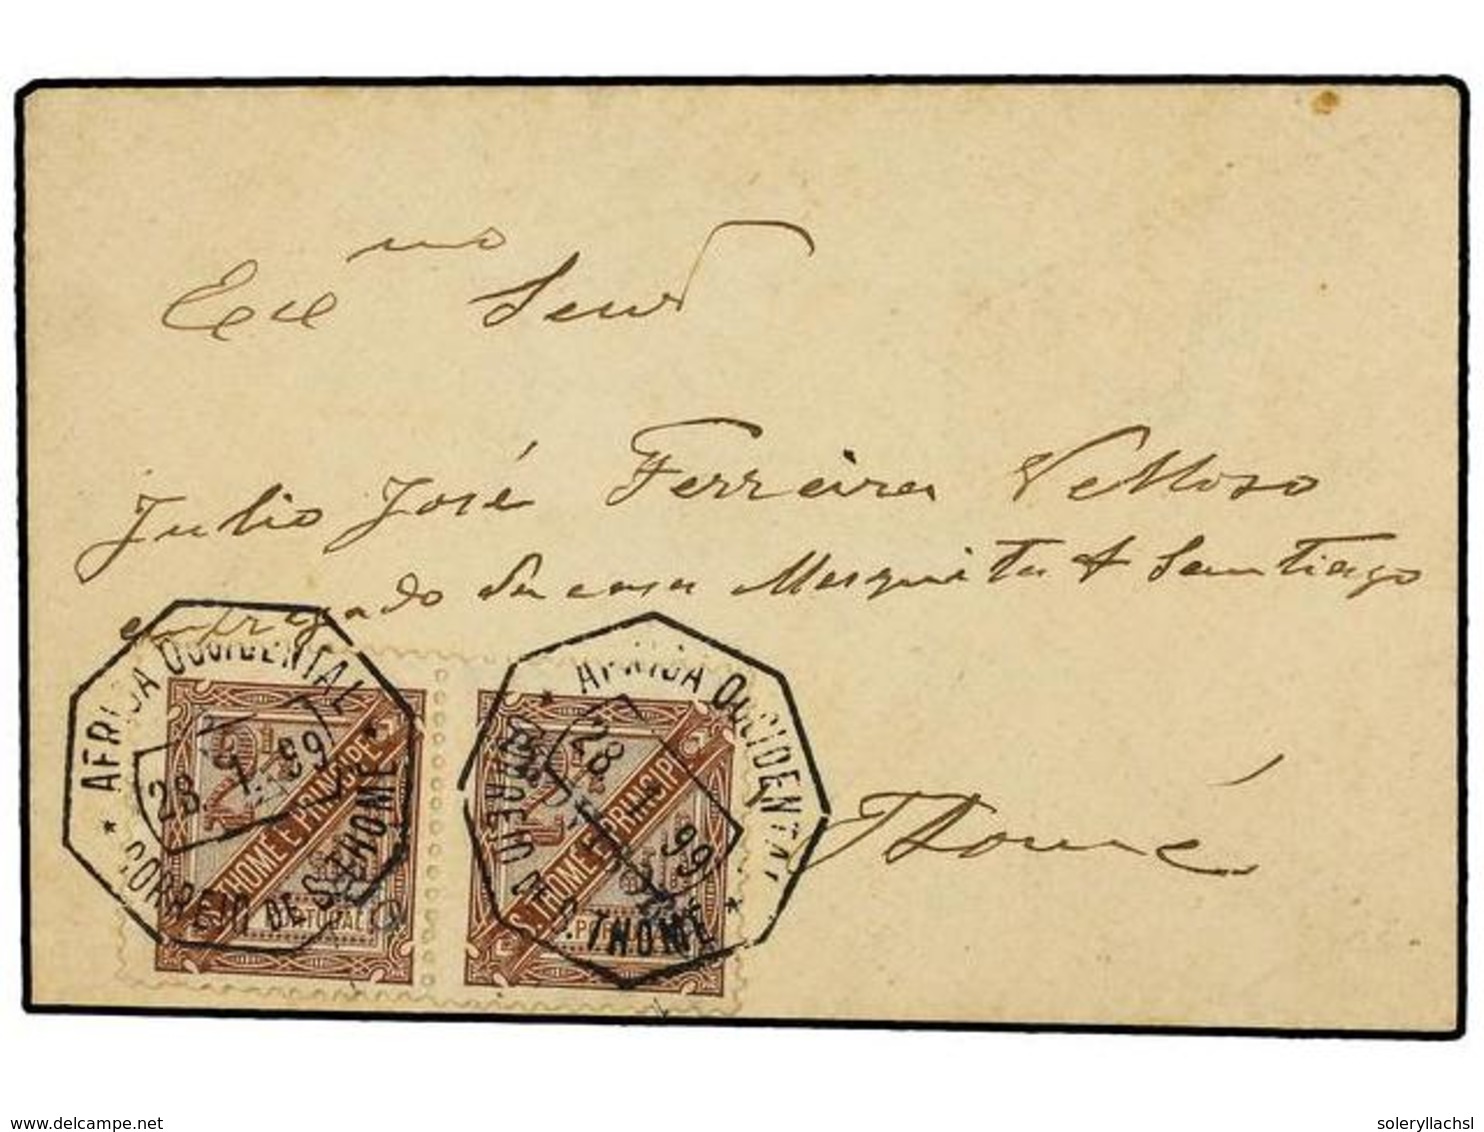 Exc^mo Senr
Julio José Ferreira Velloso
empregado da casa Mesquita & Santiago
S. Thomé
* AFRICA OCCIDENTAL *
28 1 99
CORREIO DE S. THOMÉ
S. THOME E PRINCIPE
PORTUGAL
2½
* AFRICA OCCIDENTAL *
28 1 99
CORREIO DE S. THOMÉ
S. THOME E PRINCIPE
2½
delcampe.net
soleryllachsl